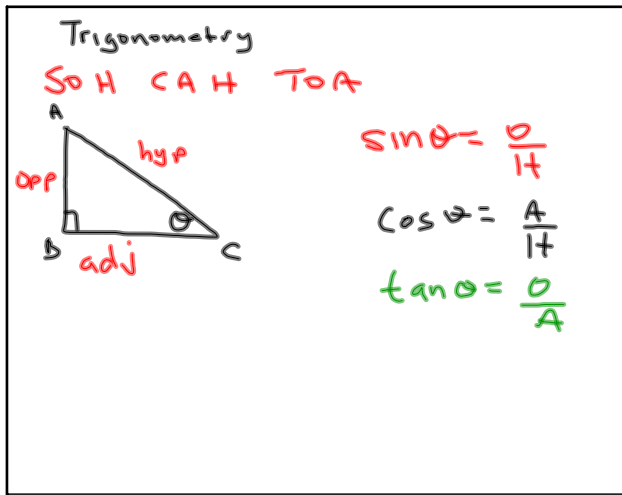 Trigonometry
SOH CAH TOA
A
opp
hyp
θ
B
adj
C
sinθ = O/H
cosθ = A/H
tanθ = O/A